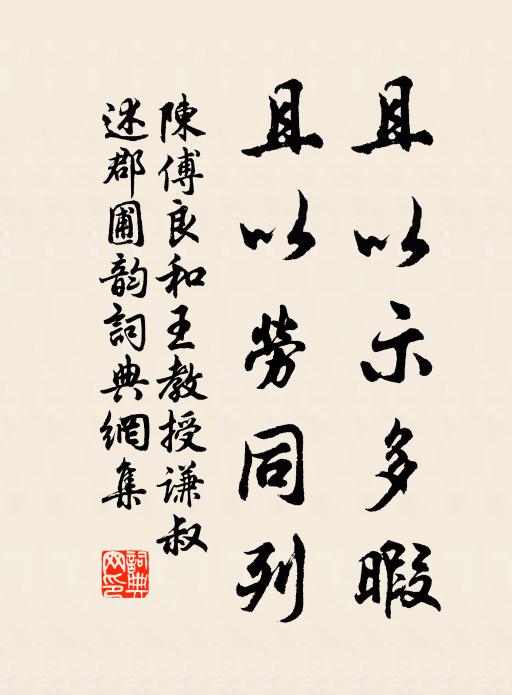 且以示多暇
且以勞同列
陳傅良和王教授謙叔
述郡圃韵詞典網集
詞典網印